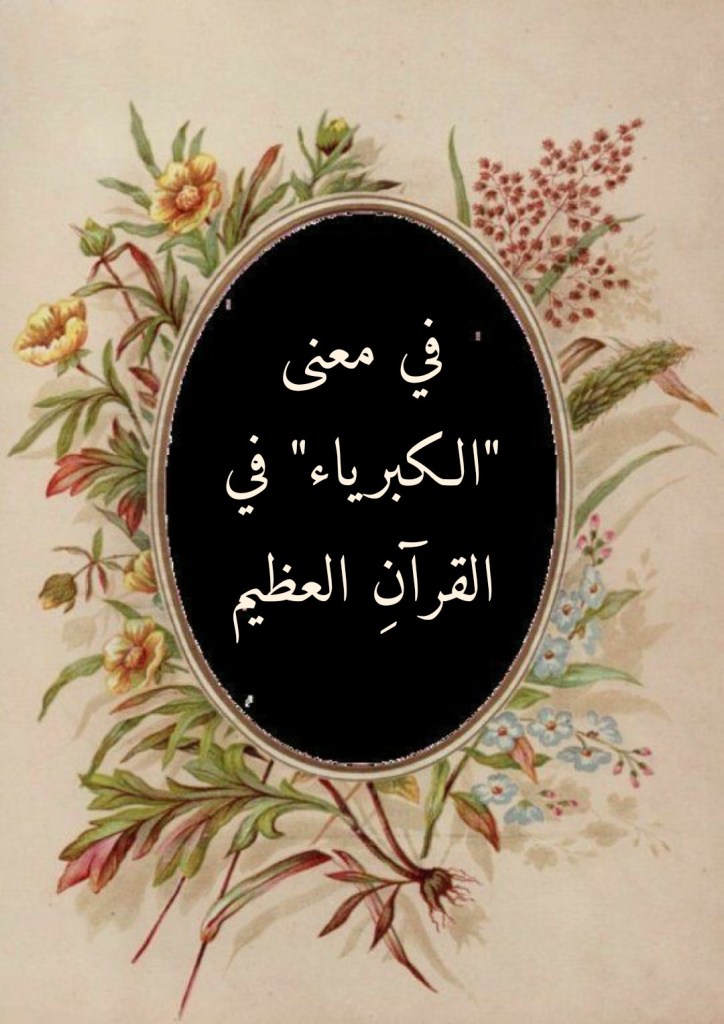 في معنى
"الكبرياء" في
القرآنِ العظيم